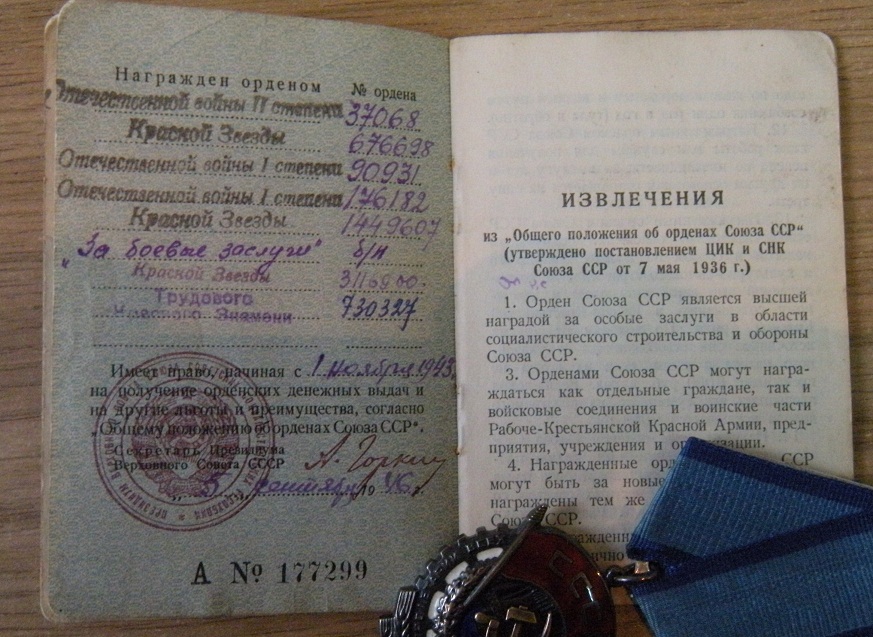 Награжден орденом № ордена
Отечественной войны II степени 37068
Красной Звезды 676698
Отечественной войны I степени 90931
Отечественной войны I степени 176182
Красной Звезды 1449607
„За боевые заслуги" б/н
Красной Звезды
Трудового
Красного Знамени 730327
Имеет право, начиная с 1 ноября 1943
на получение орденских денежных выдач и
на другие льготы и преимущества, согласно
„Общему положению об орденах Союза ССР".
Секретарь Президиума
Верховного Совета СССР А. Горкин
„5" сентября 1946 г.
А № 177299
ИЗВЛЕЧЕНИЯ
из „Общего положения об орденах Союза ССР"
(утверждено постановлением ЦИК и СНК
Союза ССР от 7 мая 1936 г.)
1. Орден Союза ССР является высшей
наградой за особые заслуги в области
социалистического строительства и обороны
Союза ССР.
3. Орденами Союза ССР могут награ-
ждаться как отдельные граждане, так и
войсковые соединения и воинские части
Рабоче-Крестьянской Красной Армии, пред-
приятия, учреждения и организации.
4. Награжденные ССР
могут быть за новые
награждены тем же
Союза ССР.